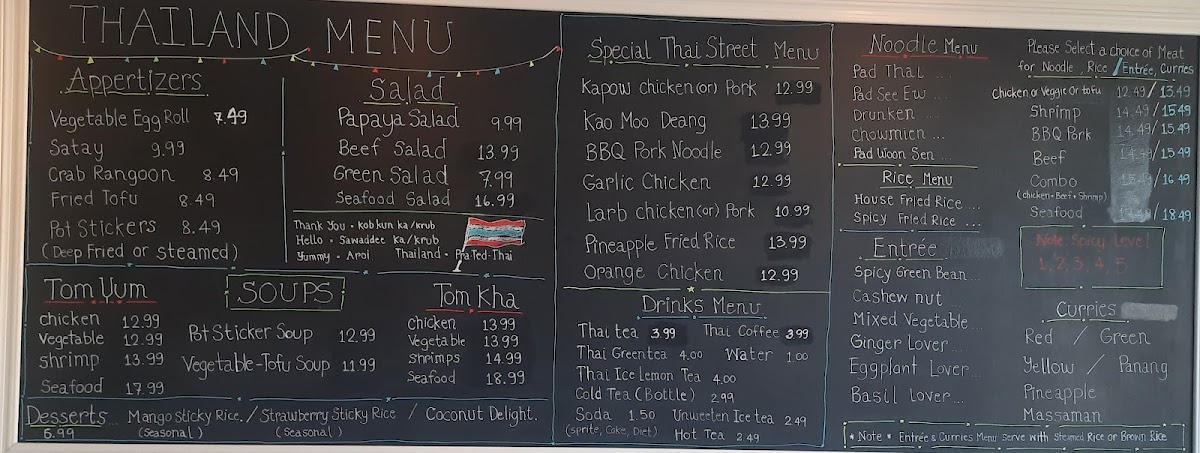 THAILAND MENU
Appertizers
Vegetable Egg Roll 7.49
Satay 9.99
Crab Rangoon 8.49
Fried Tofu 8.49
Pot Stickers 8.49
(Deep Fried or steamed)
Salad
Papaya Salad 9.99
Beef Salad 13.99
Green Salad 7.99
Seafood Salad 16.99
Thank You - Kob kun ka/krub
Hello - Sawaddee ka/krub
Yummy - Aroi Thailand - Pra Ted-Thai
SOUPS
Tom Yum
chicken 12.99
Vegetable 12.99
shrimp 13.99
Seafood 17.99
Pot Sticker Soup 12.99
Vegetable-Tofu Soup 11.99
Tom Kha
chicken 13.99
Vegetable 13.99
shrimps 14.99
Seafood 18.99
Desserts... Mango Sticky Rice. / Strawberry Sticky Rice / Coconut Delight.
6.99 (Seasonal) (Seasonal)
Special Thai Street Menu
Kapow chicken (or) Pork 12.99
Kao Moo Deang 13.99
BBQ Pork Noodle 12.99
Garlic Chicken 12.99
Larb chicken (or) Pork 10.99
Pineapple Fried Rice 13.99
Orange Chicken 12.99
Drinks Menu
Thai tea 3.99 Thai Coffee 3.99
Thai Green tea 4.00 Water 1.00
Thai Ice Lemon Tea 4.00
Cold Tea (Bottle) 2.99
Soda 1.50 Unweeten Ice tea 2.49
(sprite, Coke, Diet) Hot Tea 2.49
Noodle Menu
Pad Thai ...
Pad See Ew ...
Drunken ...
Chowmien ...
Pad Woon Sen ...
Rice Menu
House Fried Rice ...
Spicy Fried Rice ...
Entrée
Spicy Green Bean ...
Cashew nut ...
Mixed Vegetable ...
Ginger Lover ...
Eggplant Lover ...
Basil Lover ...
Please Select a choice of Meat
for Noodle, Rice / Entrée, Curries
chicken or Veggie or tofu 12.49 / 13.49
Shrimp 14.49 / 15.49
BBQ Pork 14.49 / 15.49
Beef 14.49 / 15.49
Combo 15.49 / 16.49
(chicken + Beef + Shrimp)
Seafood / 18.49
Note: Spicy Level
1, 2, 3, 4, 5
Curries
Red / Green
Yellow / Panang
Pineapple
Massaman
* Note * Entrée & Curries Menu Serve with Steamed Rice or Brown Rice